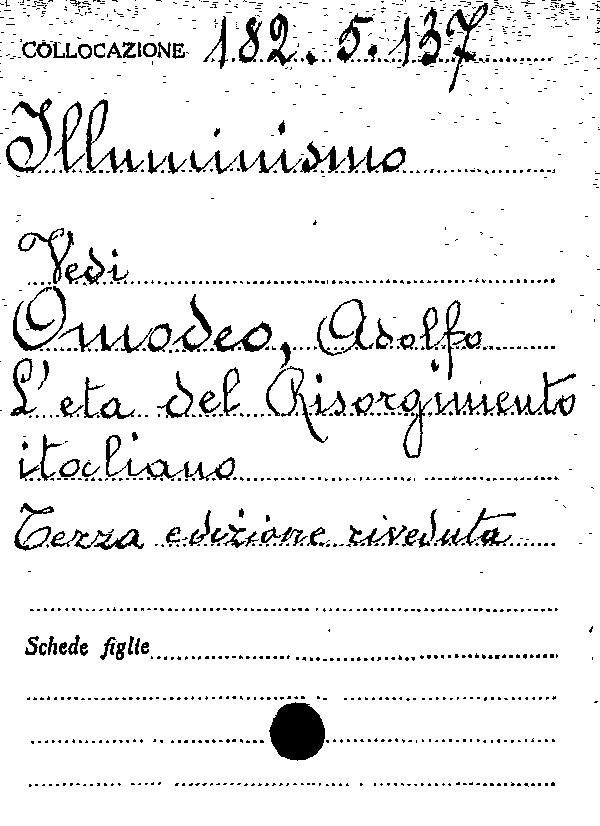 COLLOCAZIONE 182.5.137
Illuminismo
Vedi
Omodeo, Adolfo
L'eta del Risorgimento
italiano
Terza edizione riveduta
Schede figlie